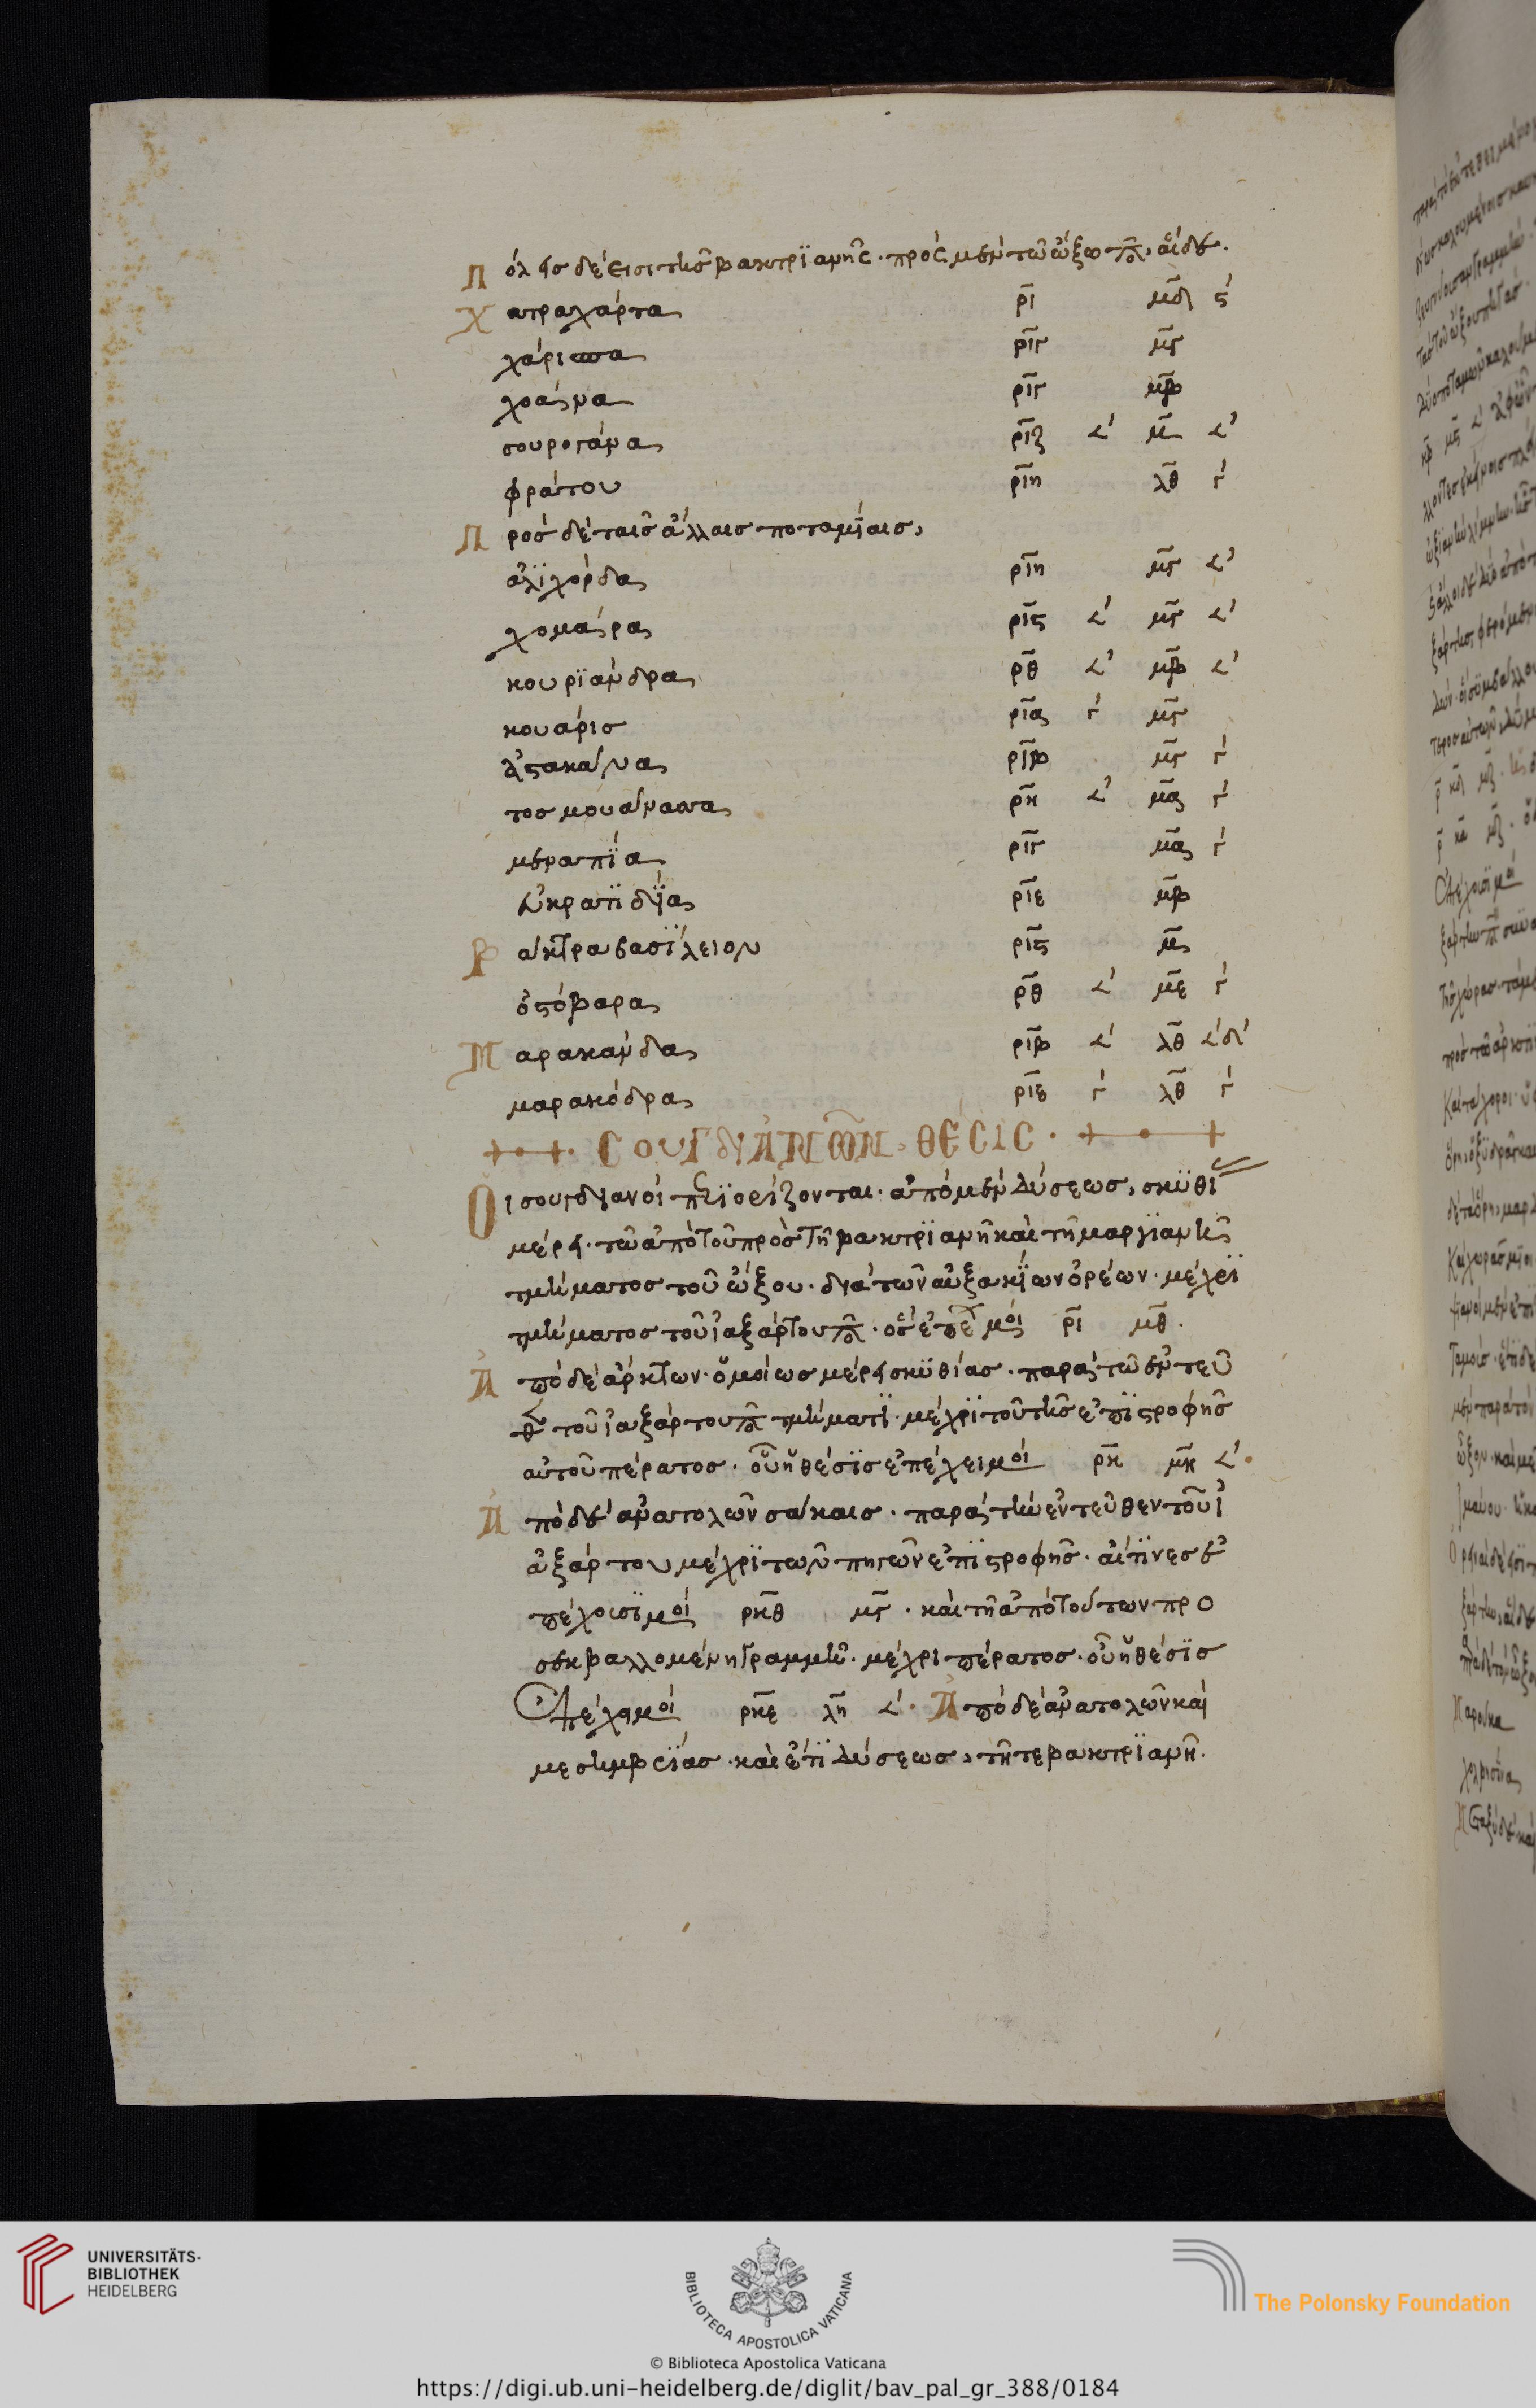 Πόλεις δέ εισι της βακτριανης· προς μεν τω ώξω π̅ο̅, αἵδε.
Χατραχάρτα ρ̅ι̅ μ̅δ̅ ϛʹ
χάρισπα ρ̅ι̅γ̅ μ̅γ̅
χοάνα ρ̅ι̅γ̅ μ̅β̅
σουρογάνα ρ̅ι̅ζ̅ 𐅵ʹ μ̅ 𐅵ʹ
φράτου ρ̅ι̅η̅ λ̅θ̅ γʹ
Πρὸς δὲ ταῖς ἄλλαις ποταμίαις,
ἀλϊχόρδα ρ̅ι̅η̅ μ̅γ̅ 𐅵ʹ
χομάρα ρ̅ι̅ϛ̅ 𐅵ʹ μ̅γ̅ 𐅵ʹ
κουρϊάνδρα ρ̅θ̅ 𐅵ʹ μ̅β̅ 𐅵ʹ
κουάρισ ρ̅ι̅α̅ γʹ μ̅γ̅
ἀστακάνα ρ̅ι̅β̅ μ̅γ̅ γʹ
τοσμουάνασσα ρ̅η̅ 𐅵ʹ μ̅α̅ γʹ
μεναπΐα ρ̅ι̅γ̅ μ̅α̅ γʹ
εὐκρατϊδία ρ̅ι̅ε̅ μ̅β̅
Βάκτρα βασΐλειον ρ̅ι̅ϛ̅ μ̅α̅
ὀστόβαρα ρ̅θ̅ 𐅵ʹ μ̅ε̅ γʹ
Μαρακάνδα ρ̅ι̅β̅ 𐅵ʹ λ̅θ̅ 𐅵ʹδʹ
μαρακόδρα ρ̅ι̅ε̅ γʹ λ̅θ̅ γʹ
ΣΟΥΓΔΙΑΝΩΝ ΘΕΣΙΣ·
Οι σουγδιανοὶ περϊορίζονται· ἀπὸ μὲν δύσεως, σκϋθί
μέρει· τῶ ἀπὸ τοῦ πρὸς τῆ βακτρϊανῆ καὶ τῆ μαργϊανῆ
τμήματος τοῦ ὤξου· διὰ τῶν αὐξακΐων ὀρέων· μέχρϊ
τμήματος τοῦ ἰαξάρτου π̅ο̅· ὃς ἐπέχ μοί ρ̅ι̅ μ̅θ̅.
Ἀπὸ δὲ ἄρκτων· ὁμοίως μέρει σκϋθίας· παρὰ τῶ ἐντεῦ
θ τοῦ ἰαξάρτου π̅ο̅ τμήματϊ· μέχρϊ τοῦ τῆς ἐπϊστροφῆς
αὐτοῦ πέρατος· οὗ ἡ θέσϊς ἐπέχει μοί ρ̅κ̅ μ̅η̅ 𐅵ʹ·
Ἀπὸ δὲ ἀνατολῶν σάκαις· παρὰ τὴν ἐντεῦθεν τοῦ ἰ
αξάρτου μέχρϊ τῶν πηγῶν ἐπϊστροφῆς· αἵτϊνες ἐ
πέχουσϊ μοί ρ̅κ̅θ̅ μ̅γ̅· καὶ τῆ ἀπὸ τούτων προ
σεκβαλλομένη γραμμῆ· μέχρι πέρατος· οὗ ἡ θέσϊς
ἐπέχει μοί ρ̅κ̅ε̅ λ̅η̅ 𐅵ʹ· Ἀπὸ δὲ ἀνατολῶν καὶ
μεσημβρΐας· καὶ ἔτϊ δύσεως, τῆ τε βακτρϊανῆ·
UNIVERSITÄTS-
BIBLIOTHEK
HEIDELBERG
BIBLIOTECA APOSTOLICA VATICANA
The Polonsky Foundation
© Biblioteca Apostolica Vaticana
https://digi.ub.uni-heidelberg.de/diglit/bav_pal_gr_388/0184